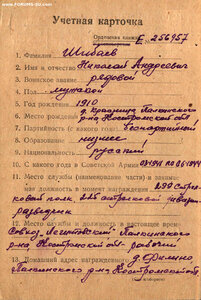 FORUMS-SU.COM
Учетная карточка
Орденская книжка Е 256957
1. Фамилия Шибаев
2. Имя и отчество Николай Андреевич
3. Воинское звание рядовой
4. Пол мужской
5. Год рождения 1910
д. Палкинского
р-на Костромской обл
7. Партийность (с какого года) беспартийный
8. Образование низшее
9. Национальность русский
10. С какого года в Советской Армии
11. Место службы (наименование части) и занимаемая должность в момент награждения 299 Стрелковый полк 225 стрелковой дивизии
разведчик
12. Место службы и должность в настоящее время
Совхоз Палкинского
р-на Костромской обл - рабочий
13. Домашний адрес награжденного д. Филино
Палкинского р-на Костромской обл.